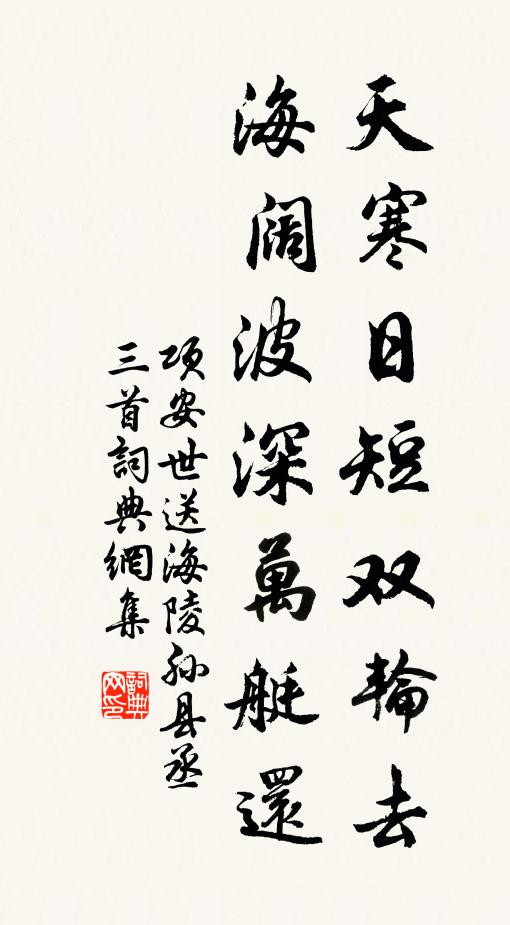 天寒日短双輪去
海闊波深萬艇還
項安世送海陵孙县丞
三首詞典網集
詞典网印